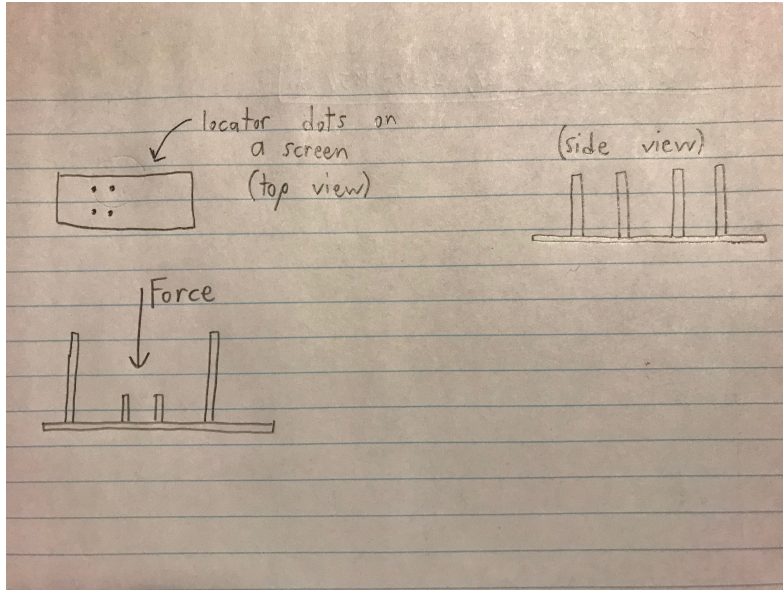 locator dots on
a screen
(top view)
(side view)
Force